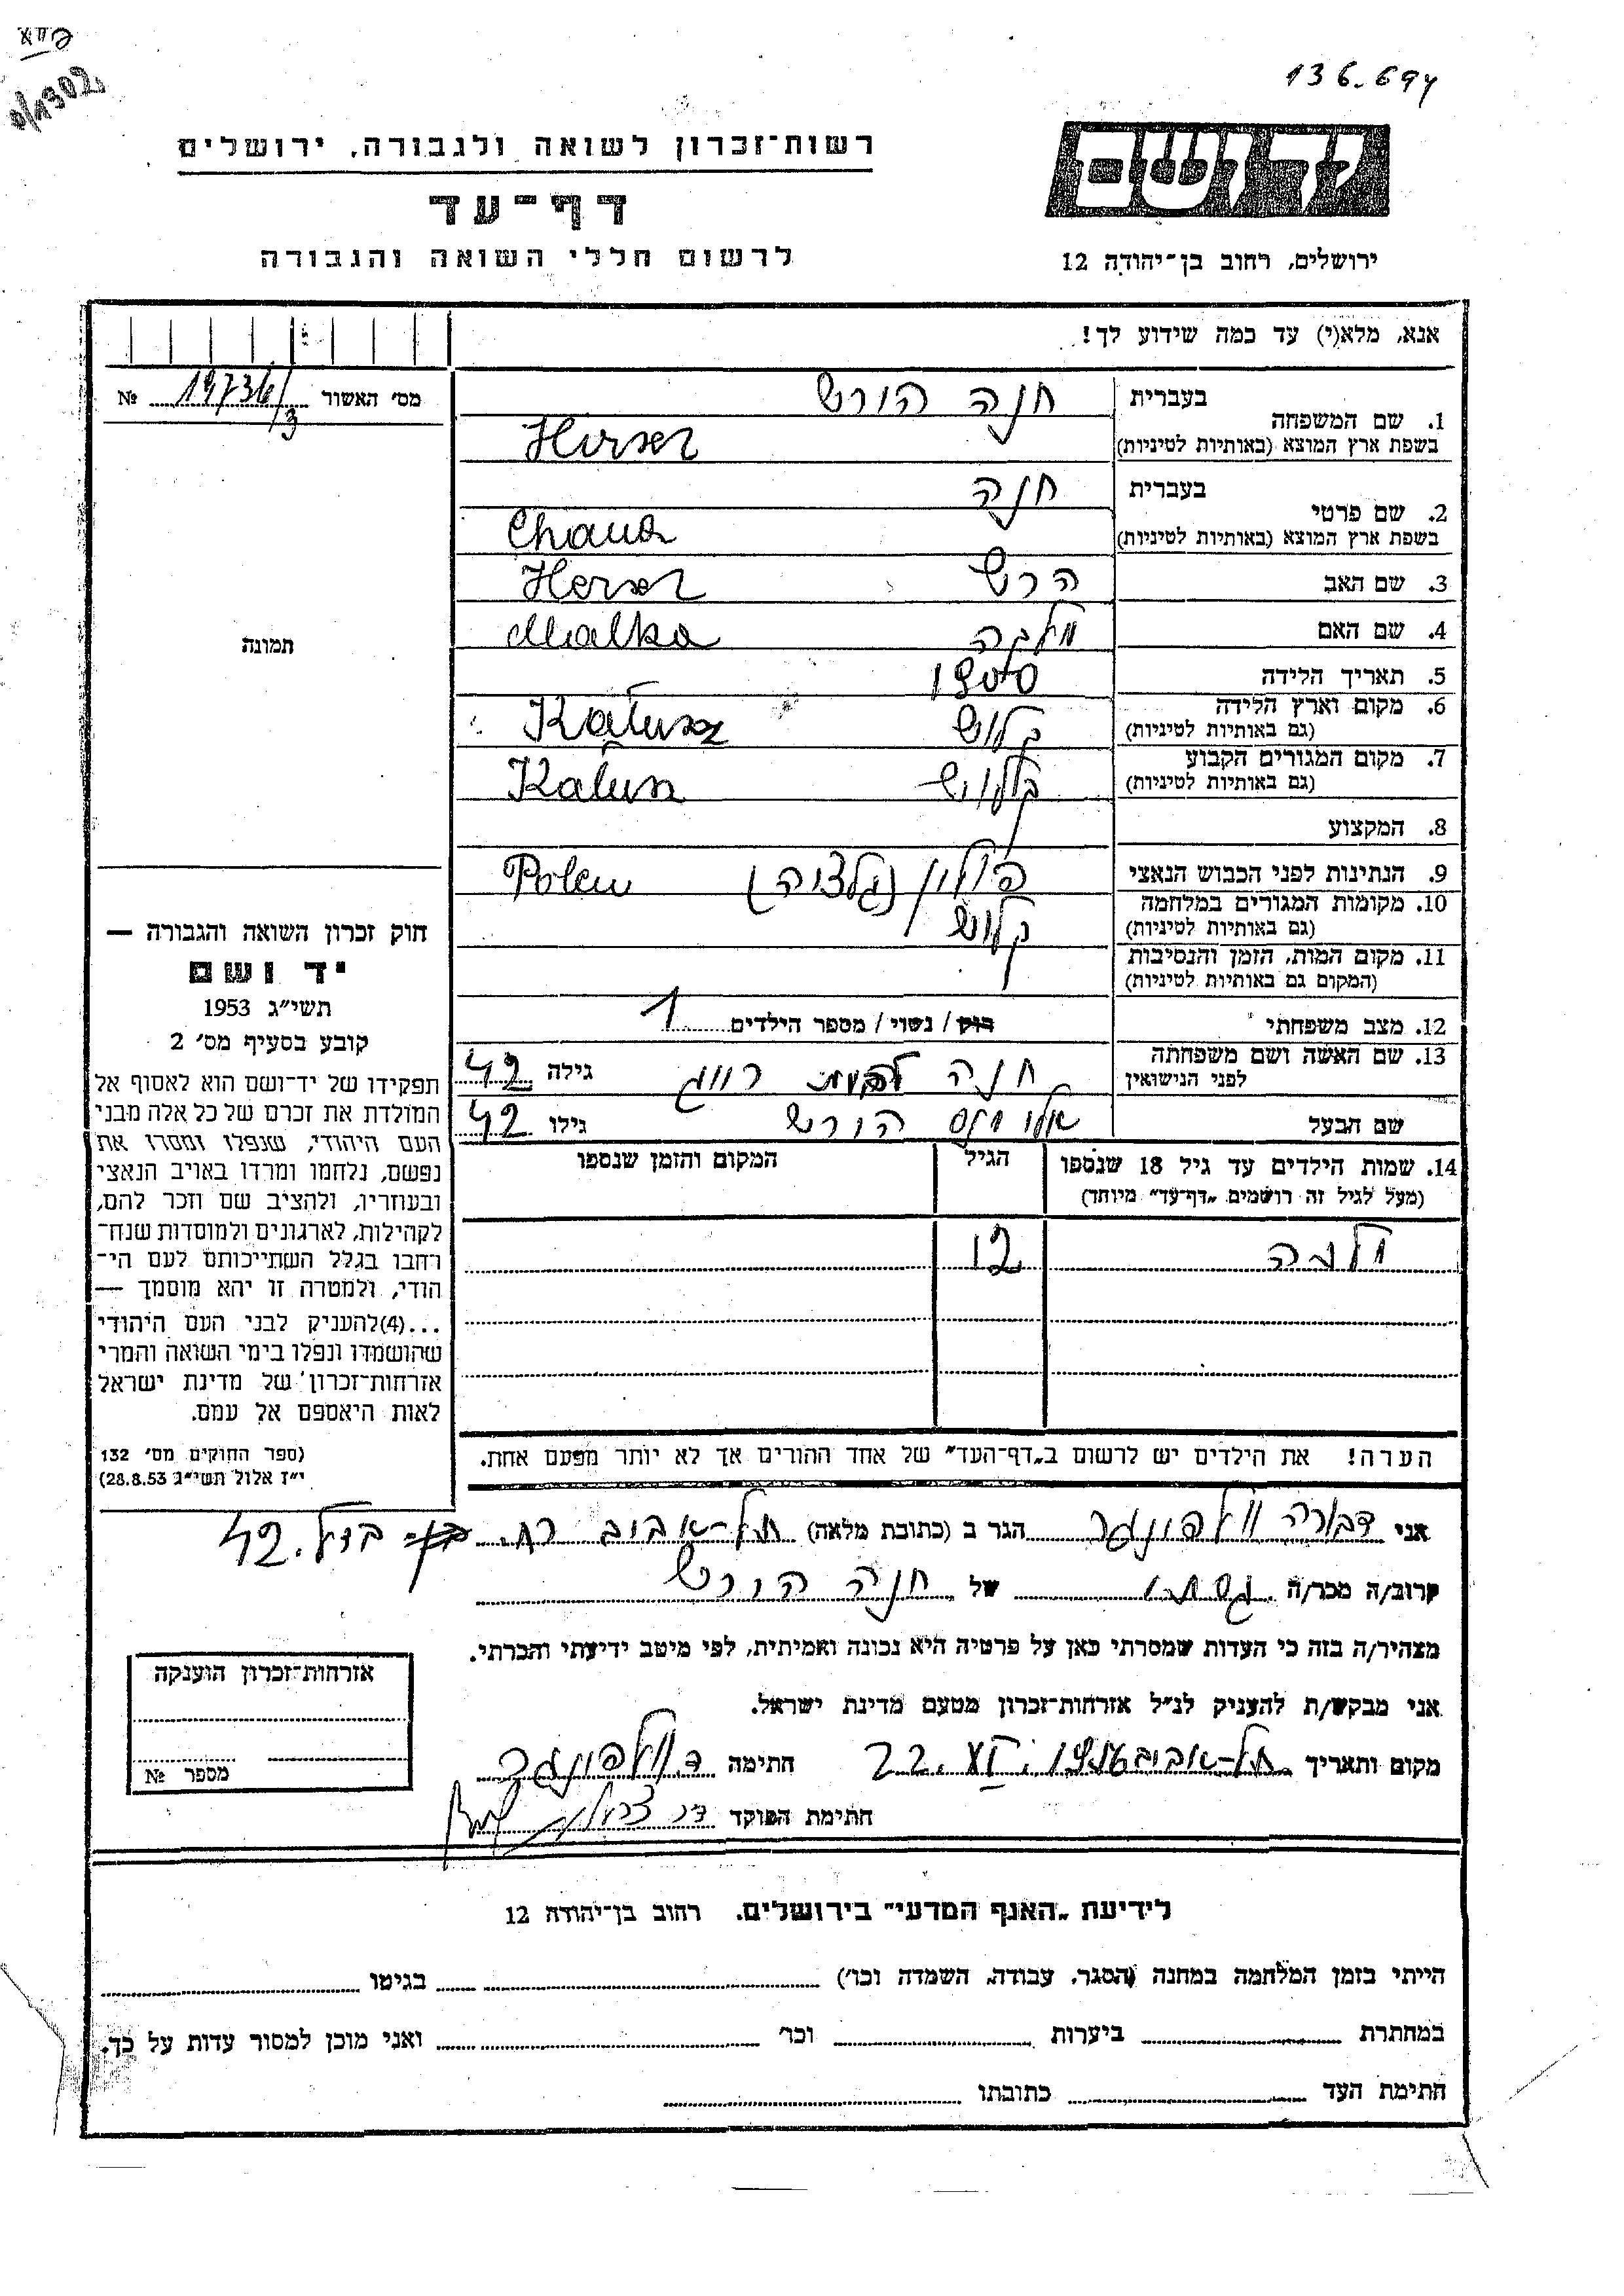 136.694
0/1302
רשות־זכרון לשואה ולגבורה, ירושלים
דף־עד
לרשום חללי השואה והגבורה
יד ושם
ירושלים, רחוב בן־יהודה 12
אנא, מלא(י) עד כמה שידוע לך!
מס׳ האשור 19736/3 №
תמונה
1. שם המשפחה
בעברית חנה הורש
בשפת ארץ המוצא (באותיות לטיניות) Hirsz
2. שם פרטי
בעברית חנה
בשפת ארץ המוצא (באותיות לטיניות) Chana
3. שם האב הרש Hersz
4. שם האם מלכה Malka
5. תאריך הלידה 1900
6. מקום וארץ הלידה קלוש Kałusz
(גם באותיות לטיניות)
7. מקום המגורים הקבוע קלוש Kałusz
(גם באותיות לטיניות)
8. המקצוע
9. הנתינות לפני הכבוש הנאצי פולין (גלציה) Polen
10. מקומות המגורים במלחמה קלוש
(גם באותיות לטיניות)
11. מקום המות, הזמן והנסיבות
(המקום גם באותיות לטיניות)
12. מצב משפחתי רוק / נשוי / מספר הילדים 1
13. שם האשה ושם משפחתה
לפני הנישואין חנה לבית גילה 42
שם הבעל הורש גילו 42
14. שמות הילדים עד גיל 18 שנספו הגיל המקום והזמן שנספו
(מעל לגיל זה רושמים „דף־עד״ מיוחד)
12
חוק זכרון השואה והגבורה —
יד ושם
תשי״ג 1953
קובע בסעיף מס׳ 2
תפקידו של יד־ושם הוא לאסוף אל
המולדת את זכרם של כל אלה מבני
העם היהודי, שנפלו ומסרו את
נפשם, נלחמו ומרדו באויב הנאצי
ובעוזריו, ולהציב שם וזכר להם,
לקהילות, לארגונים ולמוסדות שנח־
רבו בגלל השתייכותם לעם הי־
הודי, ולמטרה זו יהא מוסמך —
...(4)להעניק לבני העם היהודי
שהושמדו ונפלו בימי השואה והמרי
אזרחות־זכרון של מדינת ישראל
לאות היאספם אל עמם.
(ספר החוקים מס׳ 132
י״ז אלול תשי״ג 28.8.53)
הערה! את הילדים יש לרשום ב„דף־העד״ של אחד ההורים אך לא יותר מפעם אחת.
אני דבורה וילפונגר הגר ב (כתובת מלאה) תל־אביב רח. 42
קרוב/ה מכר/ה גסתי של חנה הורש
מצהיר/ה בזה כי העדות שמסרתי כאן על פרטיה היא נכונה ואמיתית, לפי מיטב ידיעתי והכרתי.
אני מבקש/ת להעניק לנ״ל אזרחות־זכרון מטעם מדינת ישראל.
מקום ותאריך תל־אביב 22. חתימה ד. וילפונגר
חתימת הפוקד
אזרחות־זכרון הוענקה
מספר №
לידיעת „האגף המדעי״ בירושלים. רחוב בן־יהודה 12
הייתי בזמן המלחמה במחנה (הסגר, עבודה, השמדה וכו׳) בגיטו
במחתרת ביערות וכו׳ ואני מוכן למסור עדות על כך.
חתימת העד כתובתו